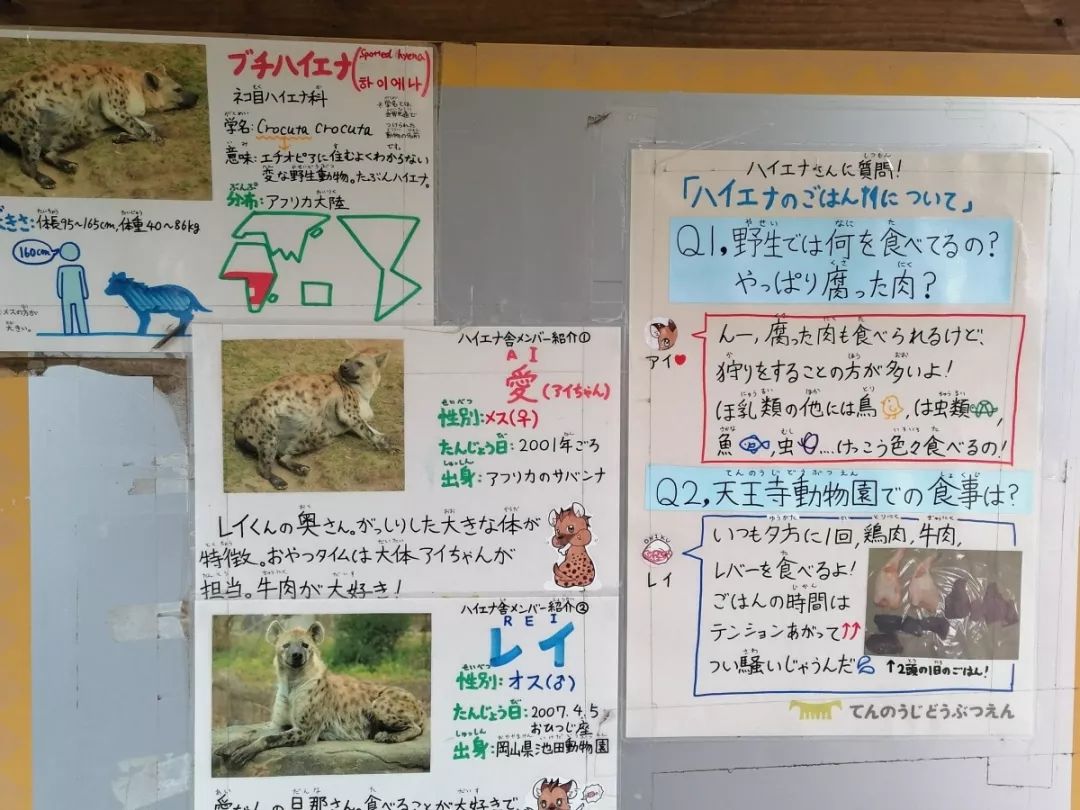 ブチハイエナ(Spotted hyena 하이에나)
ネコ目ハイエナ科
学名:Crocuta Crocuta
意味:エチオピアに住むよくわからない
変な野生動物。たぶんハイエナ。
分布:アフリカ大陸
大きさ:体長95〜165cm,体重40〜86kg
160cm
メスの方が
大きい。
ハイエナ舎メンバー紹介①
AI
愛(アイちゃん)
性別:メス(♀)
たんじょう日:2001年ごろ
出身:アフリカのサバンナ
レイくんの奥さん。がっしりした大きな体が
特徴。おやつタイムは大体アイちゃんが
担当。牛肉が大好き!
ハイエナ舎メンバー紹介②
REI
レイ
性別:オス(♂)
たんじょう日:2007.4.5
おひつじ座
出身:岡山県池田動物園
愛ちゃんの旦那さん。食べることが大好きで、
ハイエナさんに質問!
「ハイエナのごはんについて」
Q1,野生では何を食べてるの?
やっぱり腐った肉?
アイ♥
んー,腐った肉も食べられるけど、
狩りをすることの方が多いよ!
ほ乳類の他には鳥,は虫類,
魚,虫....けっこう色々食べるの!
Q2,天王寺動物園での食事は?
OHIKU
レイ
いつも夕方に1回,鶏肉,牛肉,
レバーを食べるよ!
ごはんの時間は
テンションあがって↑↑
つい騒いじゃうんだ
↑2頭の1日のごはん!
てんのうじどうぶつえん